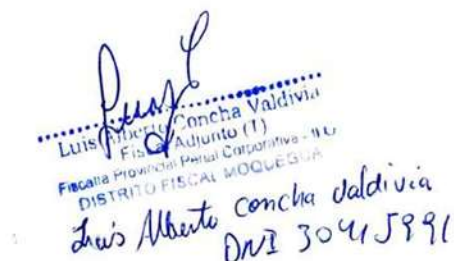 Luis Alberto Concha Valdivia
Fiscal Adjunto (T)
Fiscalia Provincial Penal Corporativa - ILO
DISTRITO FISCAL MOQUEGUA
Luis Alberto concha Valdivia
DNI 30415991